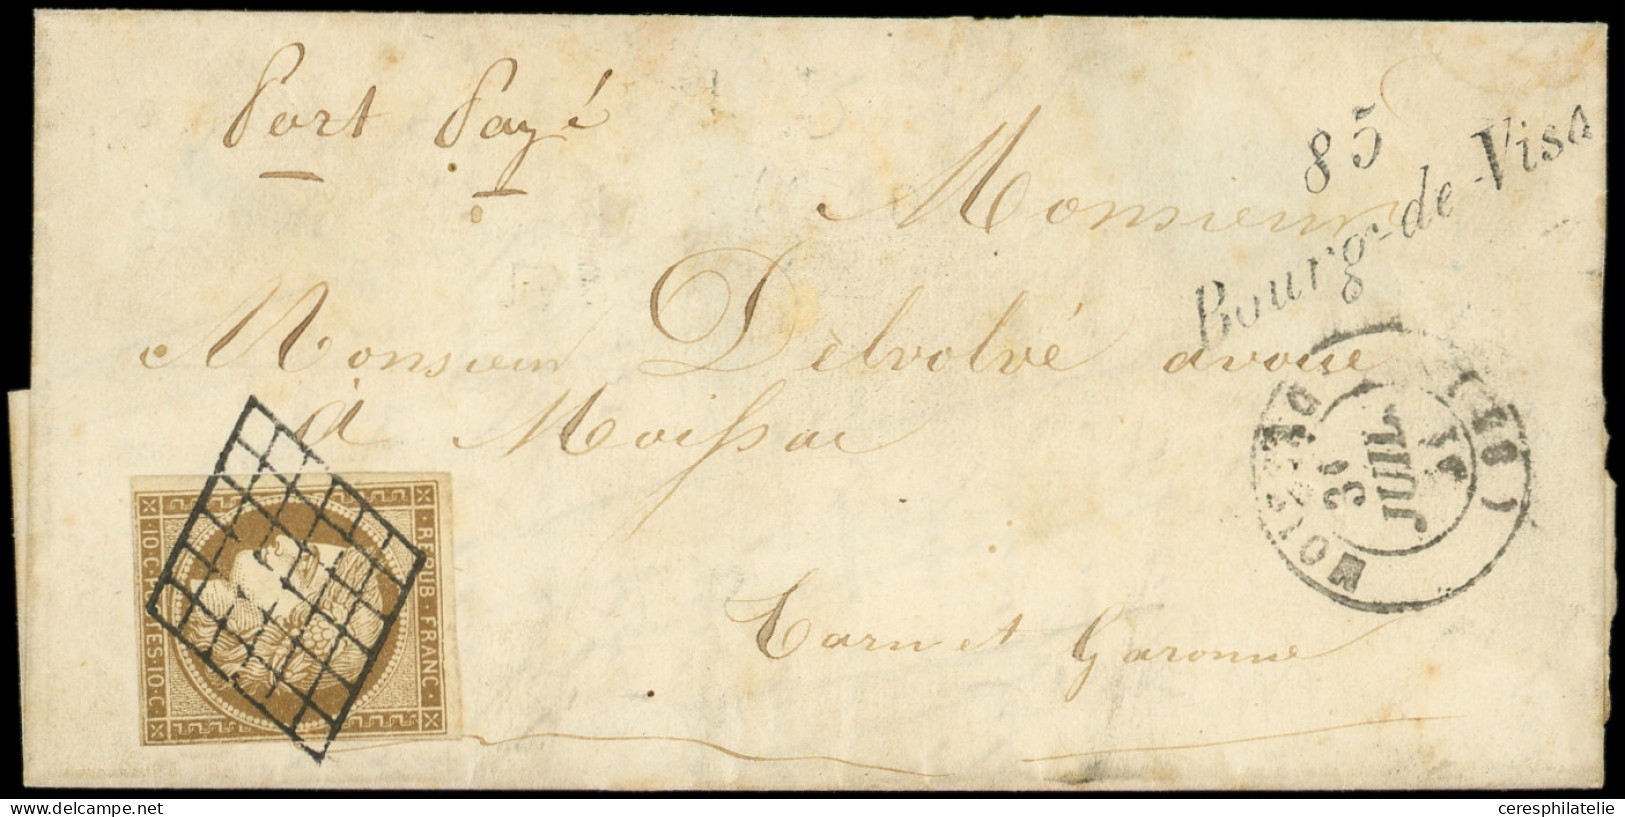 Port Payé
85
Bourg-de-Visa
Monsieur
Monsieur Delvolvé avoué
à Moissac
Tarn et Garonne
JUIL
REPUB·FRANC·
·10·C·POSTES·10·C·
delcampe.net
ceresphilatelie